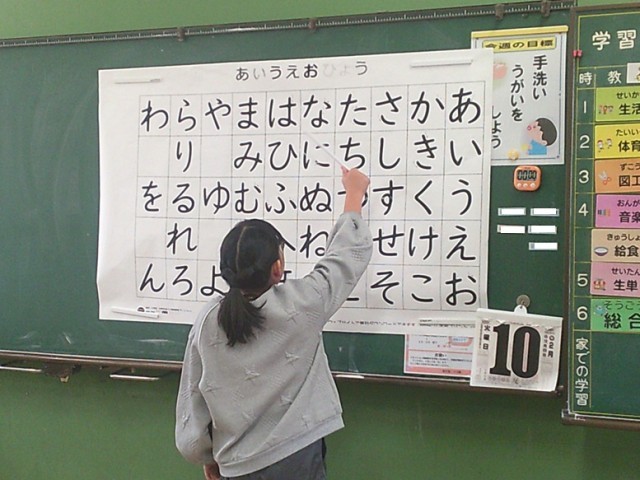 あいうえおひょう
わらやまはなたさかあ
りみひにちしきい
をるゆむふぬすくう
れへねせけえ
んろよそこお
今週の目標
手洗い
うがいを
しよう
学習
時 教
1 せいか 生活
2 たいい 体育
3 ずこう 図工
4 おんが 音楽
きゅうしょ 給食
5 せいたん 生単
6 そうご 総合
家での学習
02月
10
火曜日